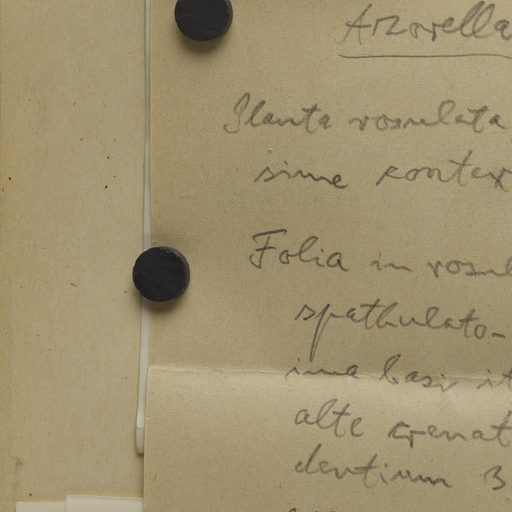 Azorella
Planta rosulata
sime contex
Folia in rosul
spathulato-
ima basi it
alte crenat
dentium 3